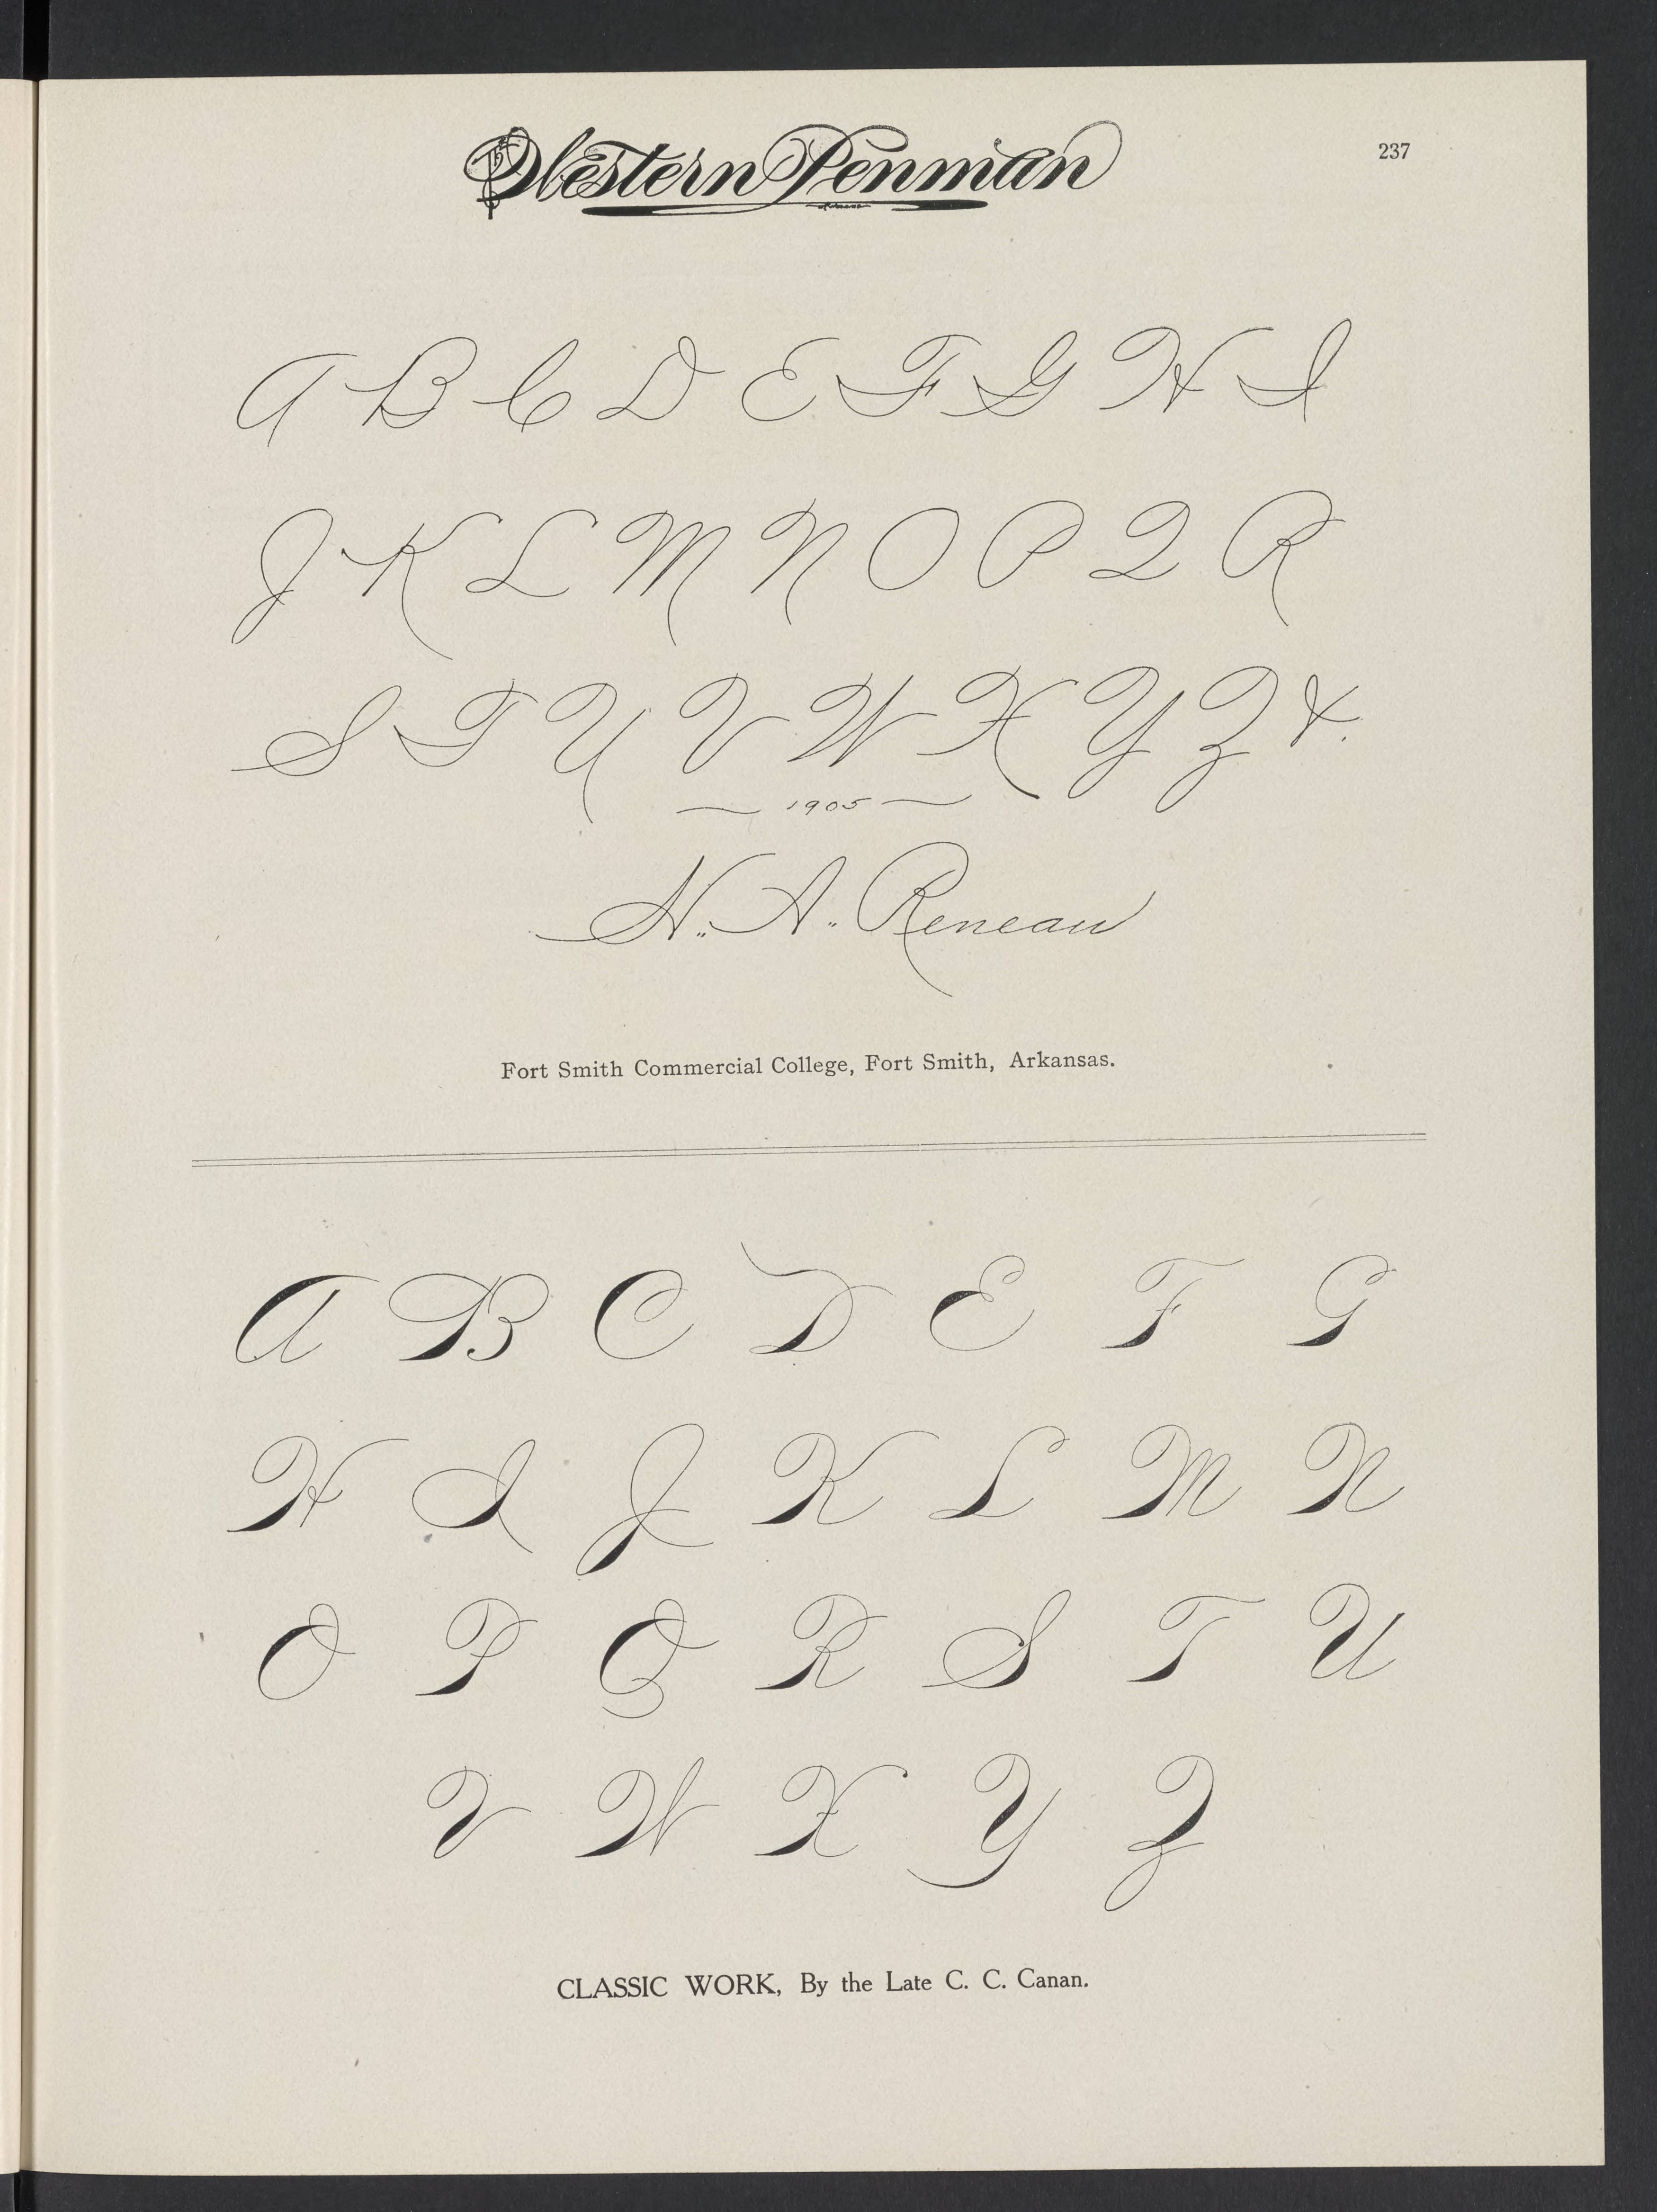 The Western Penman
237
A B C D E F G H I
J K L M N O P Q R
S T U V W X Y Z &.
1905
N. A. Reneau
Fort Smith Commercial College, Fort Smith, Arkansas.
A B C D E F G
H I J K L M N
O P Q R S T U
V W X Y Z
CLASSIC WORK, By the Late C. C. Canan.